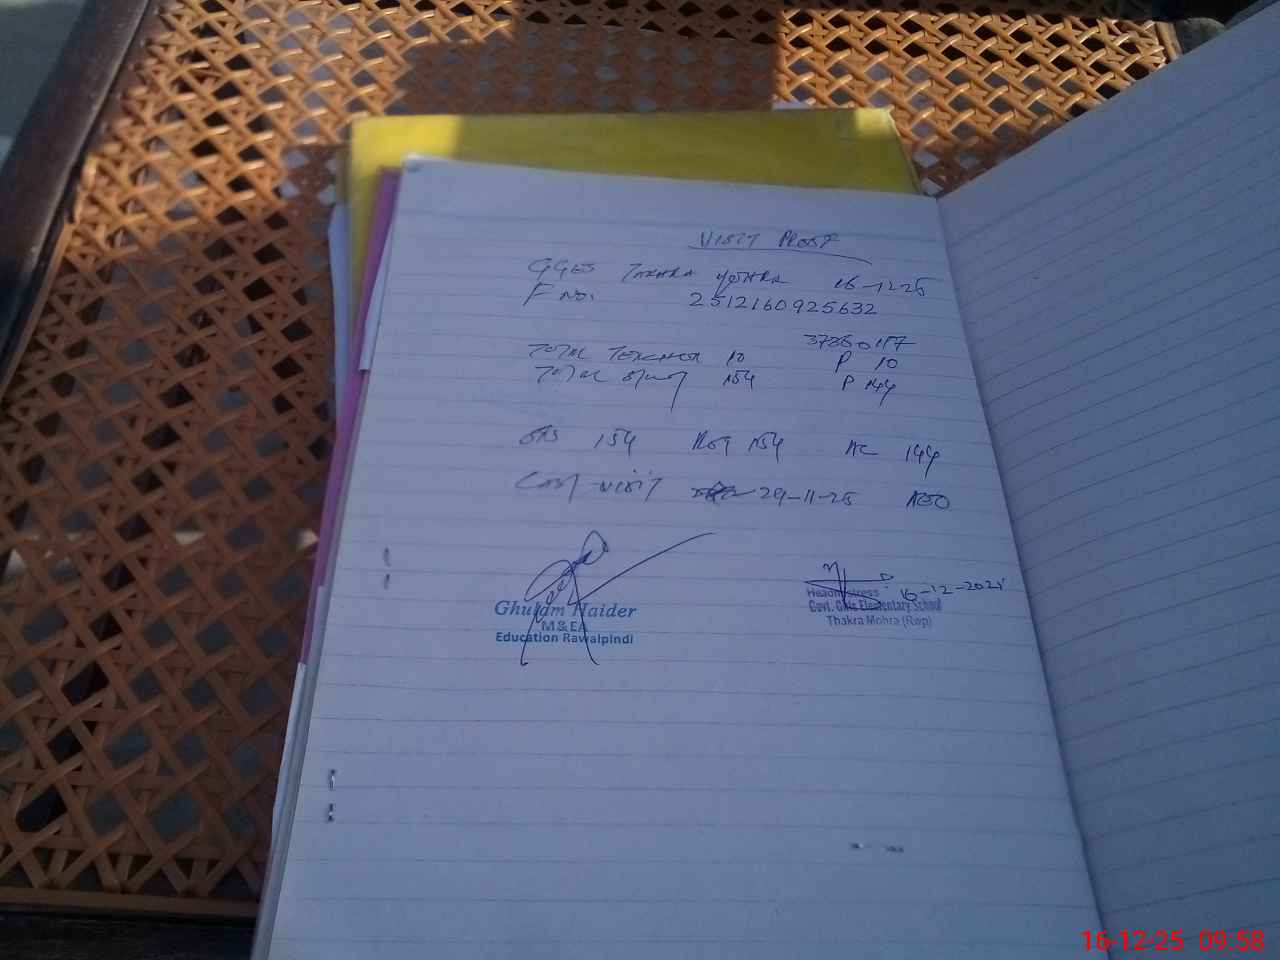 VISIT PROOF
GGES THAKRA MOHRA 16-12-25
F No. 2512160925632
TOTAL TEACHER 10 P 10
TOTAL 154 P 144
SIS 154 REG 154 HC 144
LAST VISIT 29-11-25 AEO
Ghulam Haider
M&EA
Education Rawalpindi
16-12-2025
Headmistress
Govt. Girls Elementary School
Thakra Mohra (Rwp)
16-12-25 09:58